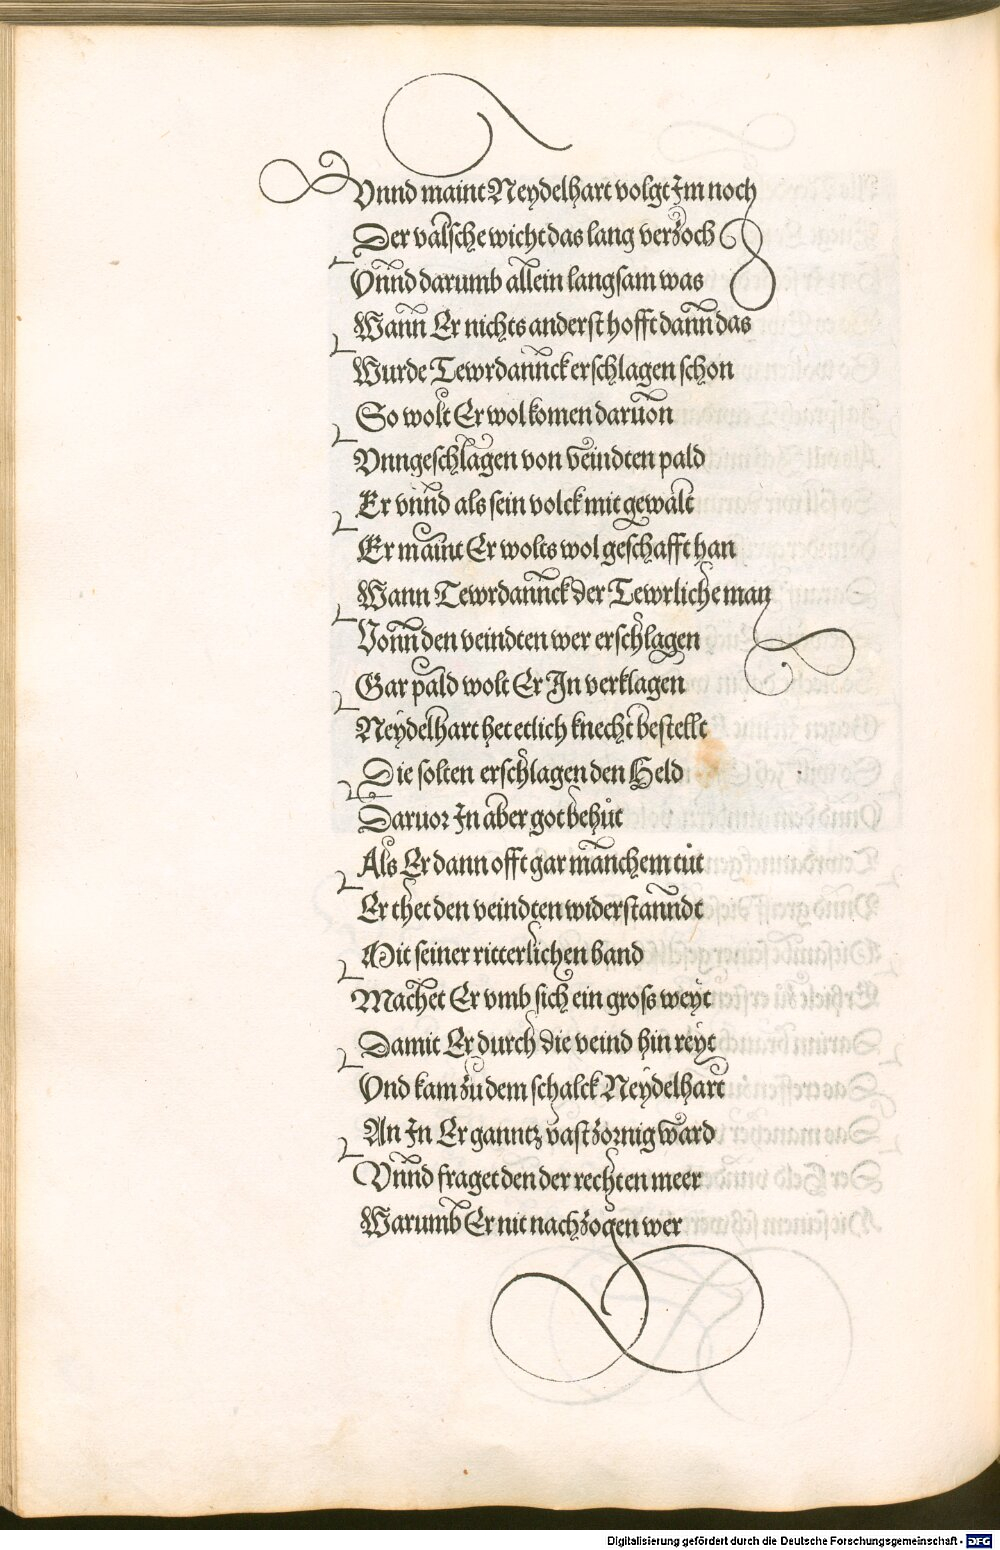 Vnnd maint Neydelhart volgt Im noch
Der valsche wicht das lang verzoch
Vnnd darumb allein langsam was
Wann Er nichts anderst hofft dann das
Wurde Tewrdannck erschlagen schon
So wolt Er wol komen daruon
Vnngeschlagen von veindten pald
Er vnnd als sein volck mit gewalt
Er maint Er wolts wol geschafft han
Wann Tewrdannck der Tewrliche man
Vonn den veindten wer erschlagen
Gar pald wolt Er In verklagen
Neydelhart het etlich knecht bestellt
Die solten erschlagen den Held
Daruor In aber got behüt
Als Er dann offt gar manchem tüt
Er thet den veindten widerstanndt
Mit seiner ritterlichen hand
Machet Er vmb sich ein gross weyt
Damit Er durch die veind hin reyt
Vnd kam zu dem schalck Neydelhart
An In Er ganntz vast zornig ward
Vnnd fraget den der rechten meer
Warumb Er nit nachzogen wer
Digitalisierung gefördert durch die Deutsche Forschungsgemeinschaft - DFG